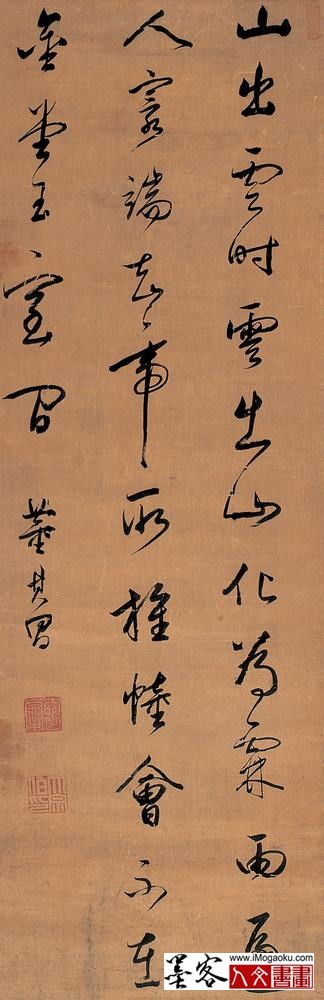 山出雲時雲出山化為霖雨
人寰端知帝所推幢會不在
金堂玉室間
董其昌
www.iMogaoku.com
墨客
人文書畫